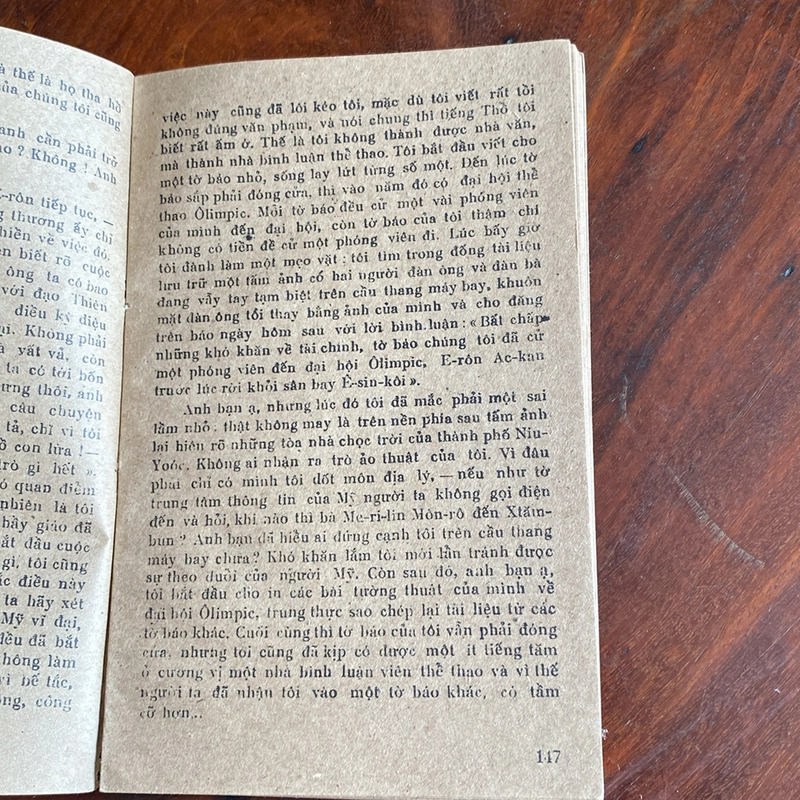 à thế là họ tha hồ
của chúng tôi cũng
anh cần phải trở
ao ? Không ! Anh
E-rôn tiếp tục, —
g thương ấy chỉ
hiền về việc đó.
ên biết rõ cuộc
ông ta có bao
với đạo Thiên
điều kỳ diệu
ại. Không phải
à vất vả, còn
ta có tới bốn
ưng thôi, anh
câu chuyện
tả, chỉ vì tôi
ồ con lừa ! —
trò gì hết ».
ó quan điểm
nhiên là tôi
hầy giáo đã
ắt đầu cuộc
gì, tôi cũng
ắc điều này
ta hãy xét
Mỹ vĩ đại,
đều đã bắt
hông làm
vì bế tắc,
ông, công
việc này cũng đã lôi kéo tôi, mặc dù tôi viết rất tồi
không đúng văn phạm, và nói chung thì tiếng Thổ tôi
biết rất ấm ở. Thế là tôi không thành được nhà văn,
mà thành nhà bình luận thể thao. Tôi bắt đầu viết cho
một tờ báo nhỏ, sống lay lứt từng số một. Đến lúc tờ
báo sắp phải đóng cửa, thì vào năm đó có đại hội thể
thao Ôlimpic. Mỗi tờ báo đều cử một vài phóng viên
của mình đến đại hội, còn tờ báo của tôi thậm chí
không có tiền để cử một phóng viên đi. Lúc bấy giờ
tôi dành làm một mẹo vặt : tôi tìm trong đống tài liệu
lưu trữ một tấm ảnh có hai người đàn ông và đàn bà
đang vẫy tay tạm biệt trên cầu thang máy bay, khuôn
mặt đàn ông tôi thay bằng ảnh của mình và cho đăng
trên báo ngày hôm sau với lời bình luận : « Bất chấp
những khó khăn về tài chính, tờ báo chúng tôi đã cử
một phóng viên đến đại hội Ôlimpic, E-rôn Ac-kan
trước lúc rời khỏi sân bay Ê-sin-kôi ».
Anh bạn ạ, nhưng lúc đó tôi đã mắc phải một sai
lầm nhỏ. thật không may là trên nền phía sau tấm ảnh
lại hiện rõ những tòa nhà chọc trời của thành phố Niu-
Yoóc. Không ai nhận ra trò ảo thuật của tôi. Vì đâu
phải chỉ có mình tôi dốt môn địa lý, — nếu như từ
trung tâm thông tin của Mỹ người ta không gọi điện
đến và hỏi, khi nào thì bà Me-ri-lin Môn-rô đến Xtăm-
bun ? Anh bạn đã hiểu ai đứng cạnh tôi trên cầu thang
máy bay chưa ? Khó khăn lắm tôi mới lẩn tránh được
sự theo đuổi của người Mỹ. Còn sau đó, anh bạn ạ,
tôi bắt đầu cho in các bài tường thuật của mình về
đại hội Ôlimpic, trung thực sao chép lại tài liệu từ các
tờ báo khác. Cuối cùng thì tờ báo của tôi vẫn phải đóng
cửa, nhưng tôi cũng đã kịp có được một ít tiếng tăm
ở cương vị một nhà bình luận viên thể thao và vì thế
người ta đã nhận tôi vào một tờ báo khác, có tầm
cỡ hơn...
147